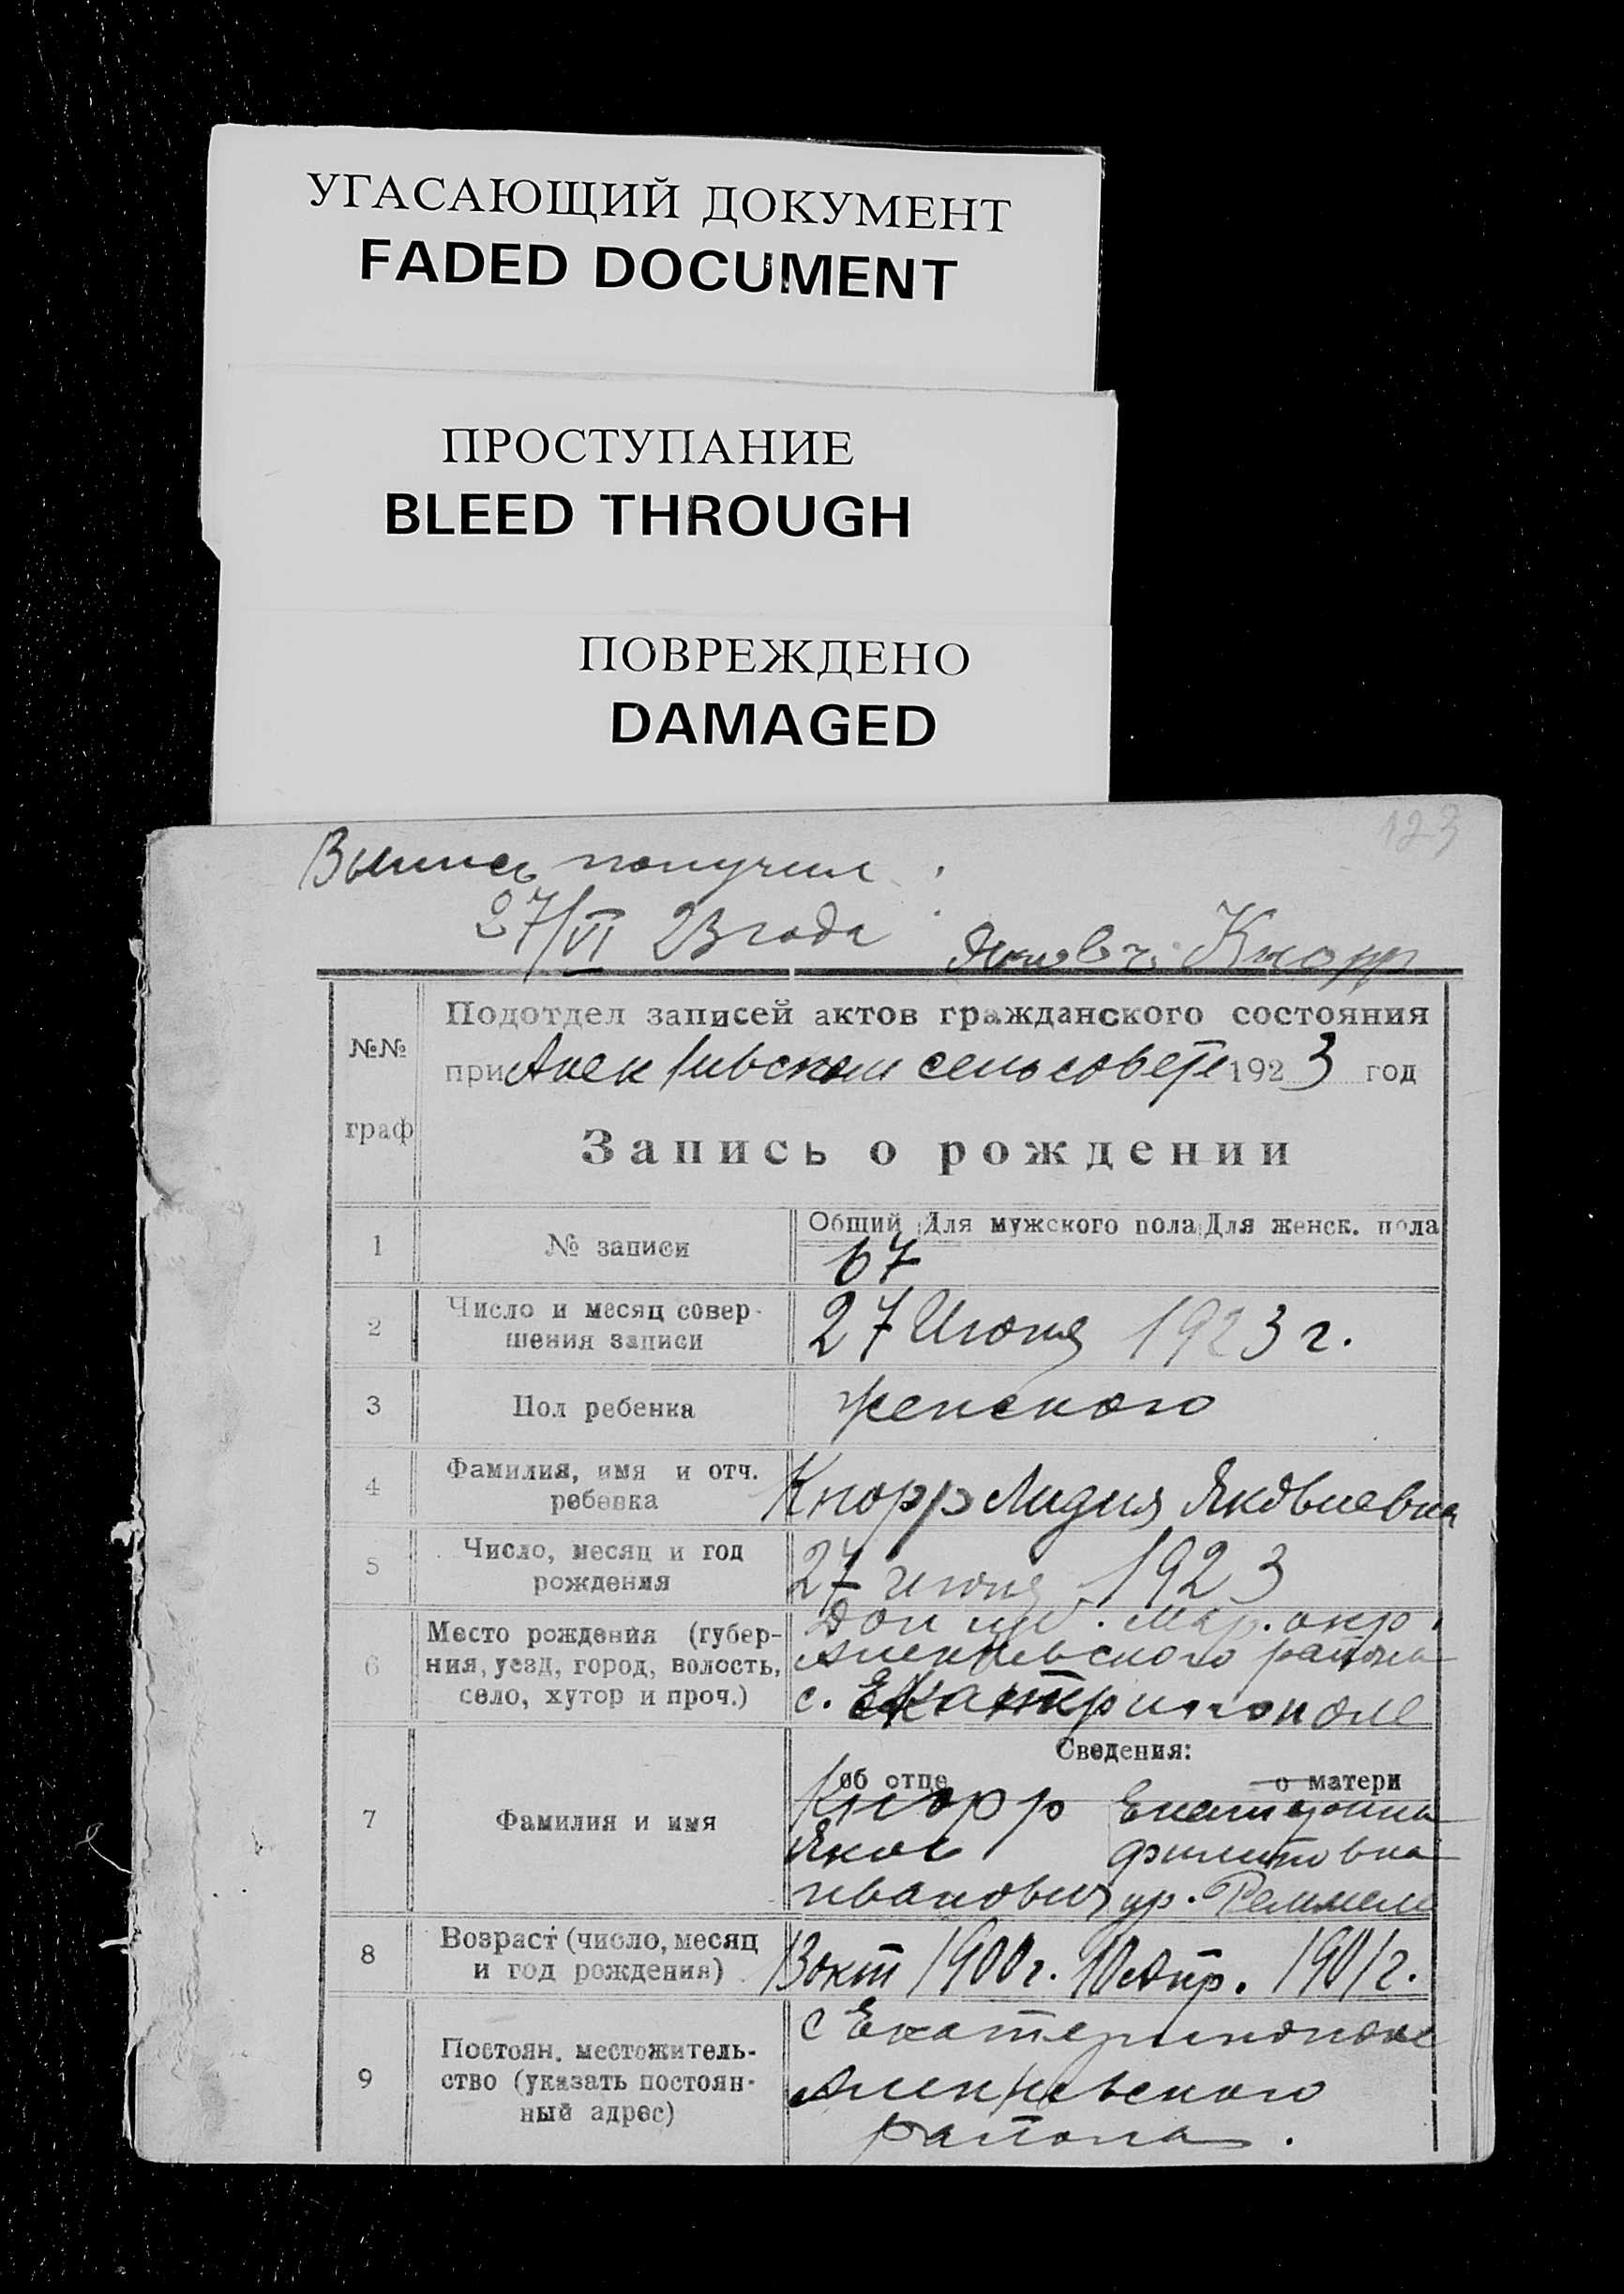 УГАСАЮЩИЙ ДОКУМЕНТ
FADED DOCUMENT
ПРОСТУПАНИЕ
BLEED THROUGH
ПОВРЕЖДЕНО
DAMAGED
123
Выпись получил
27/VI 23 года Кнорр
№№
граф
Подотдел записей актов гражданского состояния
при сельсовете 1923 год
Запись о рождении
1 № записи
Общий Для мужского пола Для женск. пола
67
2 Число и месяц совер-
шения записи
27 Июня 1923 г.
3 Пол ребенка
женского
4 Фамилия, имя и отч.
ребенка
Кнорр Лидия Яковлевна
5 Число, месяц и год
рождения
27 июня 1923
6 Место рождения (губер-
ния, уезд, город, волость,
село, хутор и проч.)
Дон губ. Мар. окр.
района
с.
Сведения:
об отце о матери
7 Фамилия и имя
Кнорр Екатерина
Яков Филиповна
Иванович ур.
8 Возраст (число, месяц
и год рождения)
13 окт 1900 г. 10 Апр. 1901 г.
9 Постоян. местожитель-
ство (указать постоян-
ный адрес)
с Екатеринополе
района.